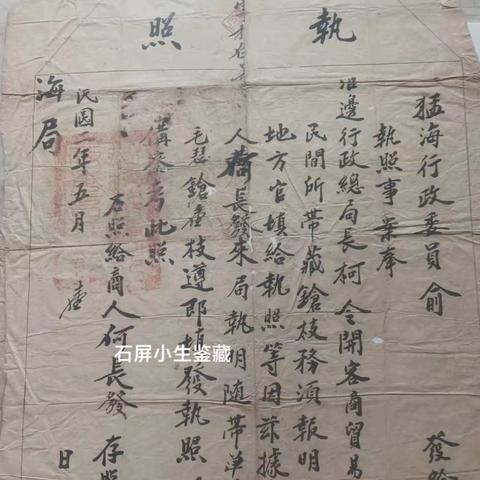 執照
猛海行政委員俞 發給
執照事案奉
沿邊行政總局長柯 令開客商貿易
民間所帶藏鎗枝務須報明
地方官填給執照等因茲據
人 長發來局執明随帶单
毛瑟鎗壹枝遵即填發執照
備查考此照
右照給商人何長發 存照
民國二年五月 壹 日
海局
石屏小生鉴藏